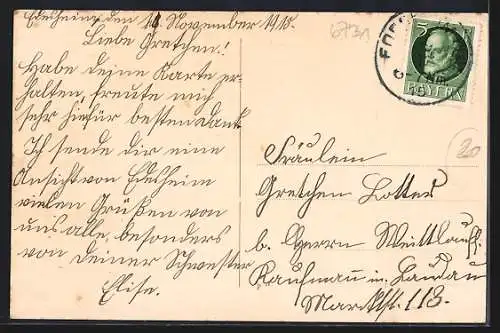 Edesheim, den 10. November 1915.
Liebe Gretchen!
Habe deine Karte er-
halten, freute mich
sehr hiefür besten Dank.
Ich sende dir eine
Ansicht von Edesheim
vielen Grüßen von
uns alle, besonders
von deiner Schwester
Elise.
6731
5
BAYERN
20
Fräulein
Gretchen Lotter
b. Herrn
Kaufmann in Landau
Marktst. 113.